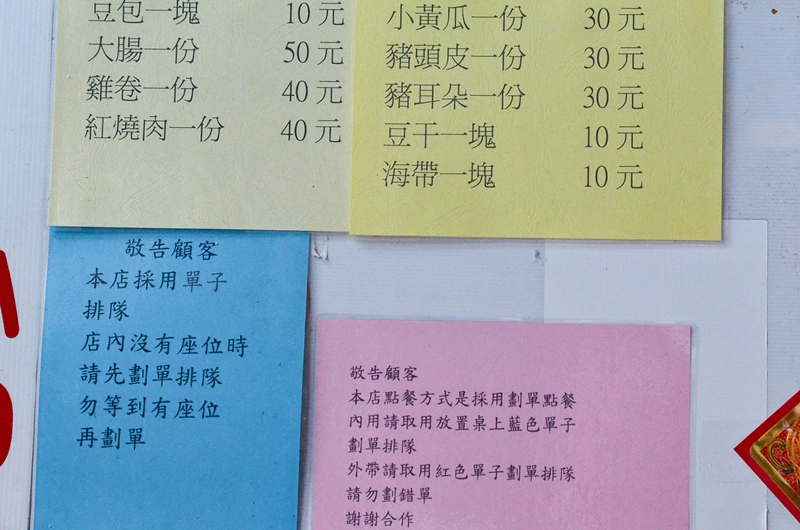 豆包一塊 10 元
大腸一份 50 元
雞卷一份 40 元
紅燒肉一份 40 元
小黃瓜一份 30 元
豬頭皮一份 30 元
豬耳朵一份 30 元
豆干一塊 10 元
海帶一塊 10 元
敬告顧客
本店採用單子
排隊
店內沒有座位時
請先劃單排隊
勿等到有座位
再劃單
敬告顧客
本店點餐方式是採用劃單點餐
內用請取用放置桌上藍色單子
劃單排隊
外帶請取用紅色單子劃單排隊
請勿劃錯單
謝謝合作